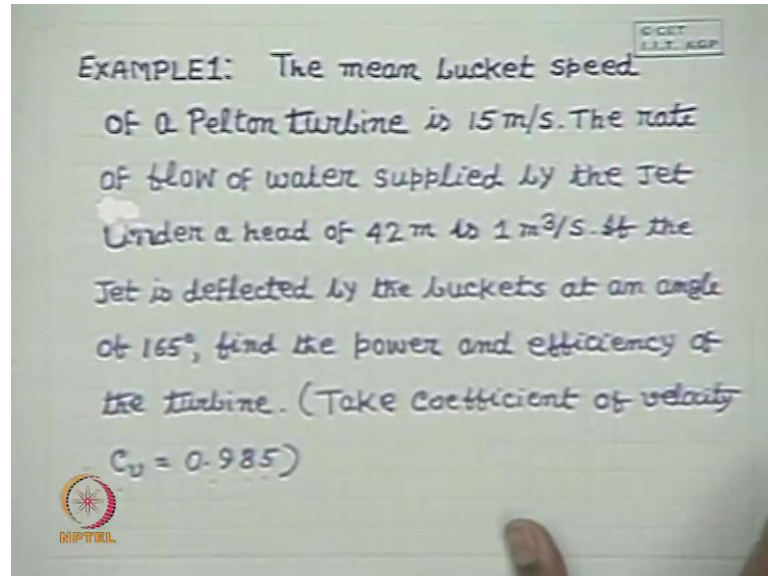 © CET
I.I.T. KGP
EXAMPLE1: The mean bucket speed
of a Pelton turbine is 15 m/s. The rate
of flow of water supplied by the Jet
Under a head of 42 m is 1 m³/s. If the
Jet is deflected by the buckets at an angle
of 165°, find the power and efficiency of
the turbine. (Take coefficient of velocity
Cv = 0.985)
NPTEL